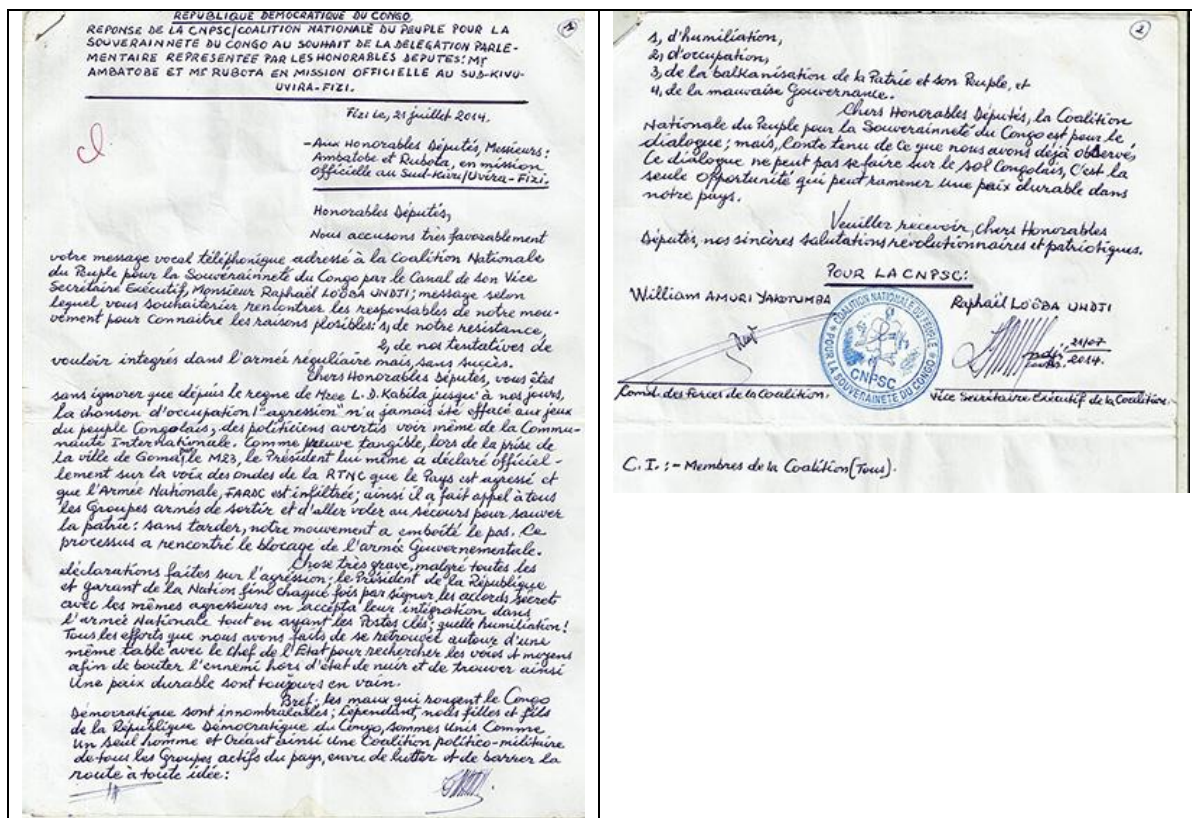 REPUBLIQUE DEMOCRATIQUE DU CONGO
REPONSE DE LA CNPSC/COALITION NATIONALE DU PEUPLE POUR LA
SOUVERAINNETE DU CONGO AU SOUHAIT DE LA DELEGATION PARLE-
MENTAIRE REPRESENTEE PAR LES HONORABLES DEPUTES: Mr
AMBATOBE ET Mr RUBOTA EN MISSION OFFICIELLE AU SUD-KIVU-
UVIRA-FIZI.
Fizi le, 21 juillet 2014.
-Aux Honorables Députés, Messieurs:
Ambatobe et Rubota, en mission
officielle au Sud-Kivu/Uvira-Fizi.
Honorables Députés,
Nous accusons très favorablement
votre message vocal téléphonique adressé à la Coalition Nationale
du Peuple pour la Souvérainneté du Congo par le Canal de son Vice
Secrétaire Exécutif, Monsieur Raphaël LOOBA UNDJI; message selon
lequel vous souhaiterier rencontrer les responsables de notre mou-
vement pour connaitre les raisons plosibles: 1, de notre resistance,
2, de nos tentatives de
vouloir integrés dans l'armée réguliaire mais, sans succès.
Chers Honorables Députés, vous êtes
sans ignorer que dépuis le regne de Mzee L.D. Kabila jusqu'à nos jours,
la chonson d'occupation l'"agression" n'a jamais été effacé aux jeux
du peuple Congolais, des politiciens avertis voir même de la Commu-
nauté Internationale. Comme preuve tangible, lors de la prise de
la ville de Goma, le M23, le Président lui même a déclaré officiel-
lement sur la voix des ondes de la RTNC que le Pays est agressé et
que l'Armée Nationale, FARDC est infiltrée; ainsi il a fait appel à tous
les Groupes armés de sortir et d'aller voler au sécours pour sauver
la patrie: sans tarder, notre mouvement a emboîté le pas. Ce
processus a rencontré le blocage de l'armée Gouvernementale.
Chose très grave, malgré toutes les
déclarations faites sur l'agréssion; le Président de la République
et garant de la Nation fini chaque fois par signer les accords sécrets
avec les mêmes agresseurs en accepta leur intégration dans
l'armée Nationale tout en ayant les Postes clés; quelle humiliation!
Tous les efforts que nous avons faits de se retrouver autour d'une
même table avec le Chef de l'Etat pour rechercher les voies et moyens
afin de bouter l'ennemi hors d'état de nuir et de trouver ainsi
Une paix durable sont toujours en vain.
Bref: les maux qui rongent le Congo
Démocratique sont innombralables; Cependant, nous filles et fils
de la République Démocratique du Congo, sommes Unis Comme
Un seul homme et Créant ainsi Une Coalition politico-militaire
de tous les Groupes actifs du pays, envu de lutter et de barrer la
route à toute idée:
2
1, d'humiliation,
2, d'occupation,
3, de la balkanisation de la Patrie et son Peuple, et
4, de la mauvaise Gouvernance.
Chers Honorables Députés, la Coalition
Nationale du Peuple pour la Souverainneté du Congo est pour le
dialogue; mais, Conte tenu de Ce que nous avons déjà observés
Ce dialogue ne peut pas se faire sur le sol Congolais, C'est la
seule Opportunité qui peut ramener Une paix durable dans
notre pays.
Veuillez récevoir, Chers Honorables
Députés, nos sincères Salutations révolutionnaires et patriotiques.
POUR LA CNPSC:
William AMURI YAKOTUMBA
Raphaël LOOBA UNDJI
COALITION NATIONALE DU PEUPLE
POUR LA SOUVERAINETE DU CONGO
CNPSC
21/07
2014.
Comd. des Forces de la Coalition.
Vice Secrétaire Exécutif de la Coalition.
C.I.: - Membres de la Coalition (Tous).